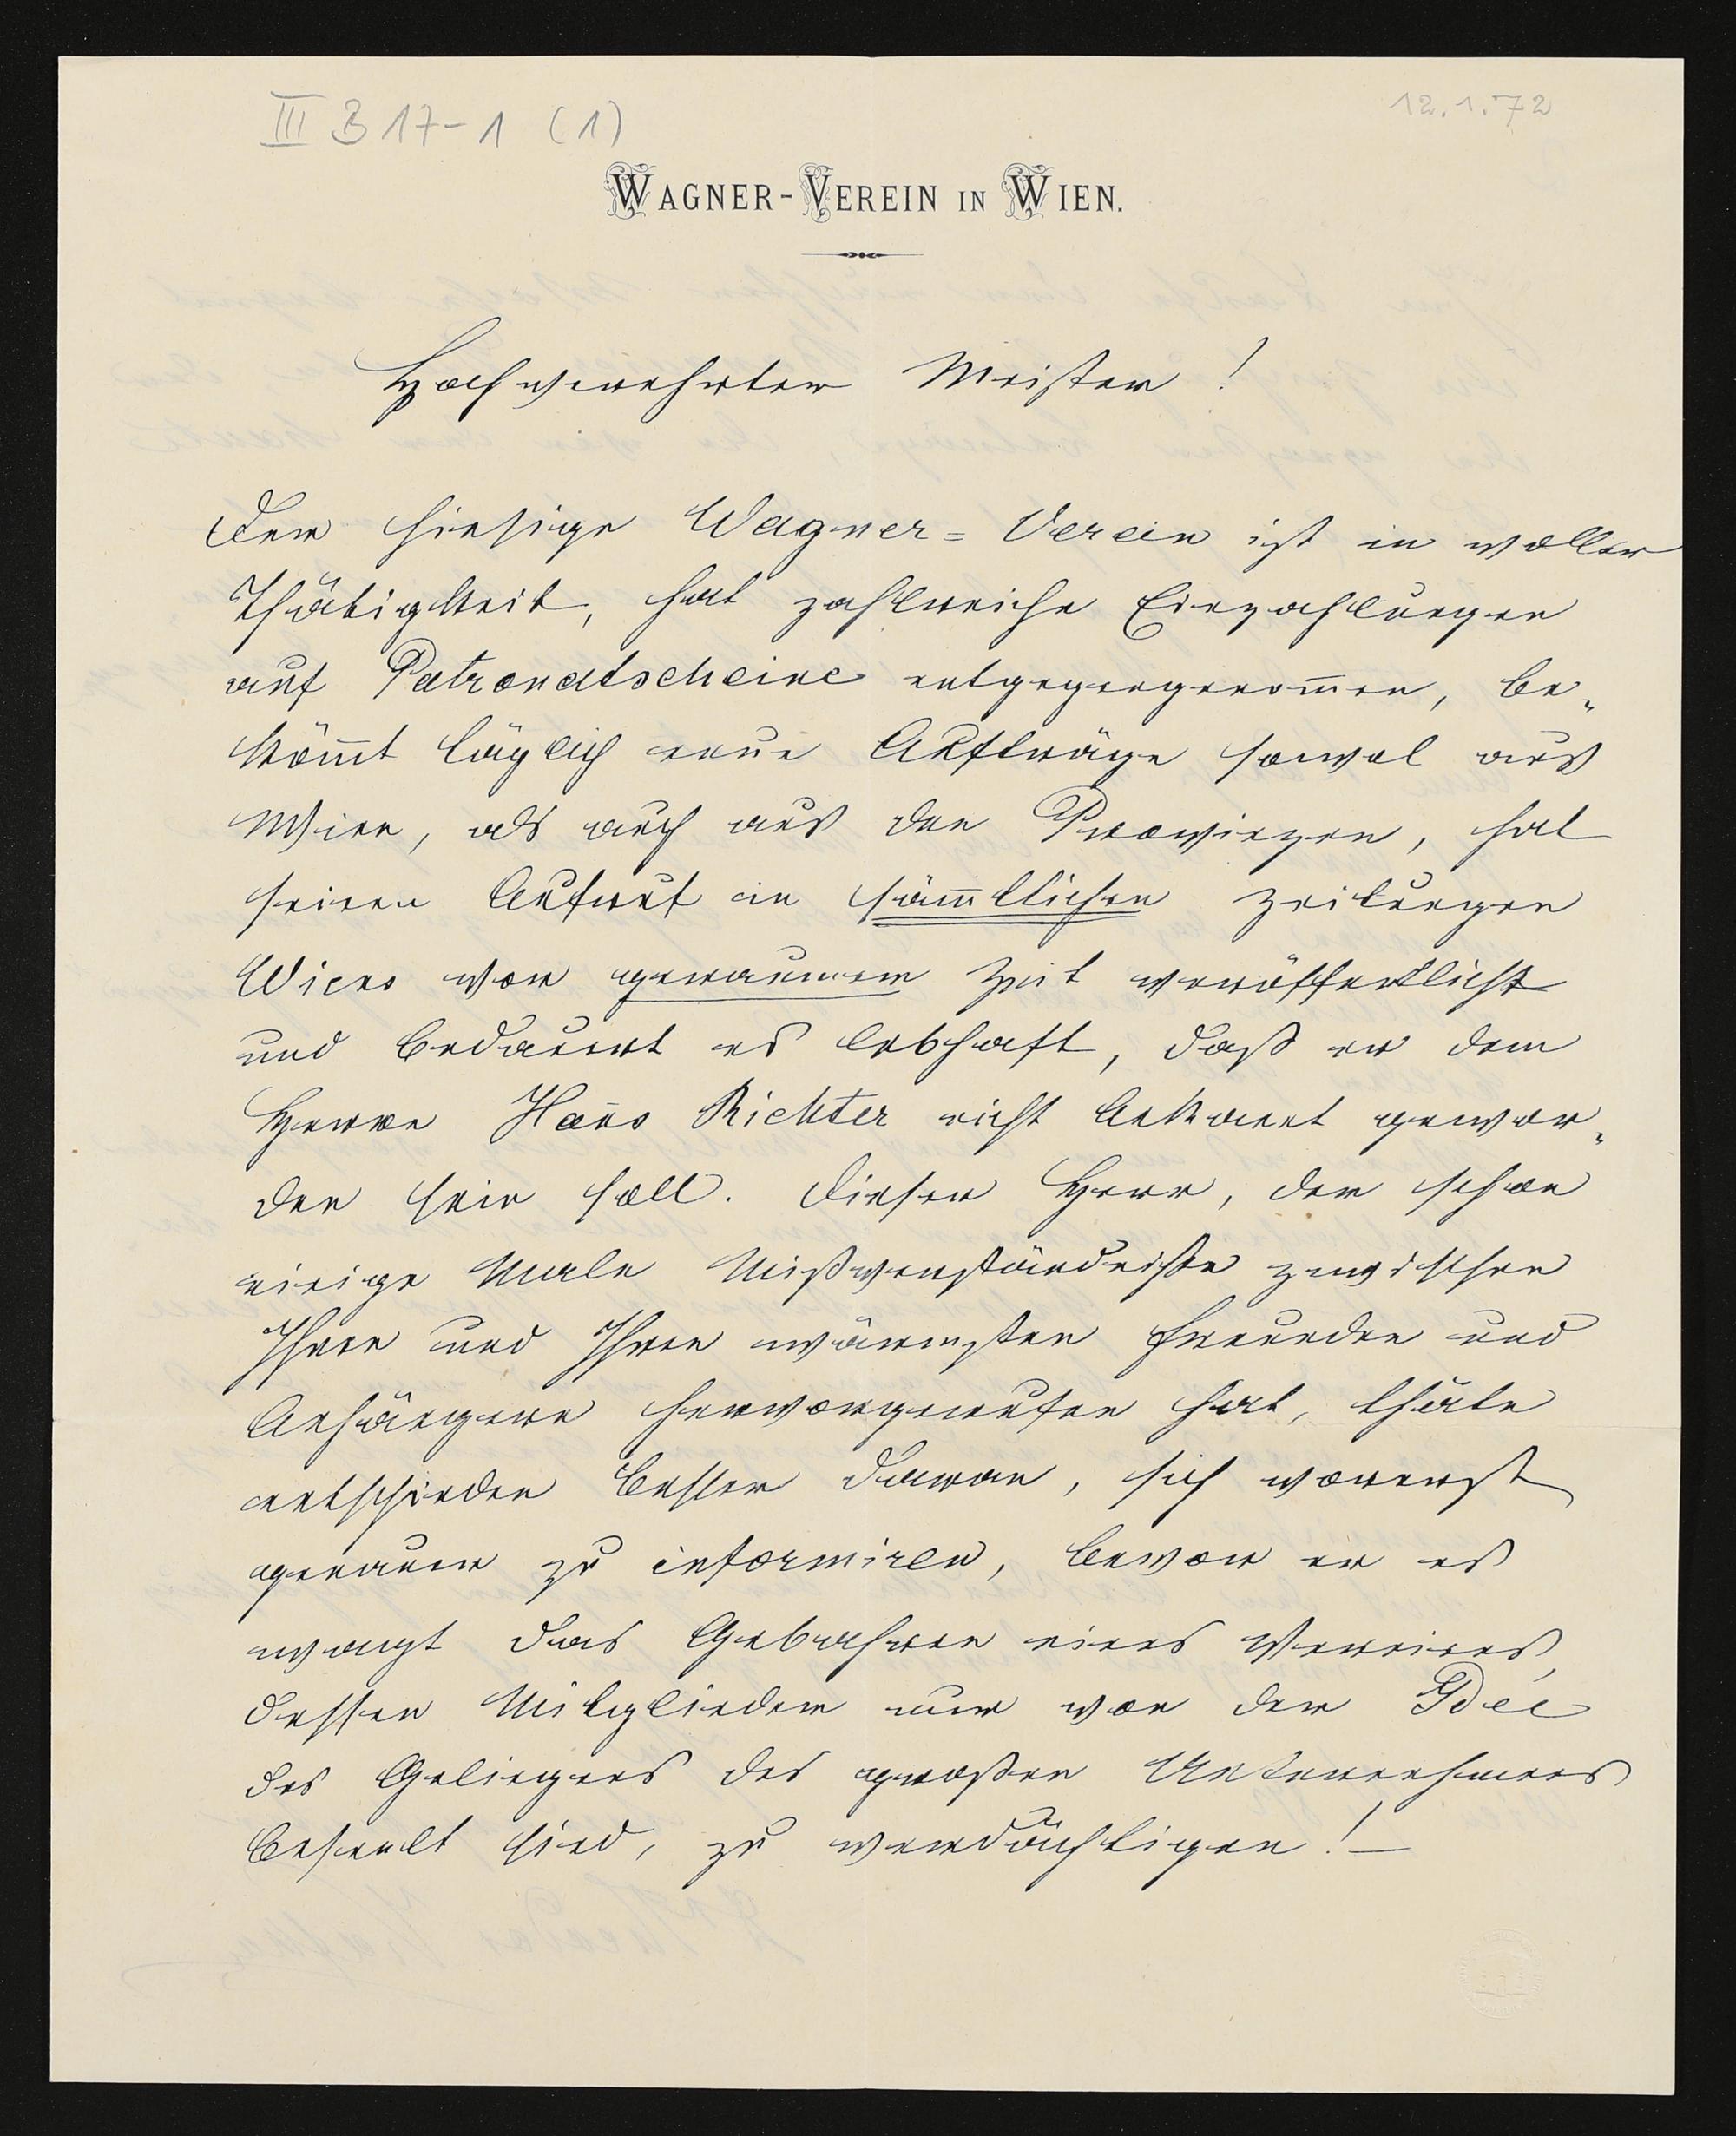 III B 17-1 (1)
12.1.72
WAGNER-VEREIN IN WIEN.
Hochverehrter Meister!
Der hiesige Wagner=Verein ist in voller
Thätigkeit, hat zahlreiche Einzahlungen
auf Patronatscheine entgegengenom̄en, be„
köm̄t täglich neue Aufträge sowol aus
Wien, als auch aus den Provinzen, hat
seinen Aufruf in säm̄tlichen Zeitungen
Wiens vor geraumer Zeit veröffentlicht
und bedauert es lebhaft, daß er dem
Herrn Hans Richter nicht bekannt gewor„
den sein soll. Dieser Herr, der schon
einige Male Mißverständniße zwischen
Ihnen und Ihren wärmsten Freunden und
Anhängern hervorgerufen hat, thäte
entschieden besser daran, sich vorerst
genauer zu informiren, bevor er es
wagt das Gebahren eines Vereines,
dessen Mitglieder nur von der Idee
des Gelingens des großen Unternehmens
beseelt sind, zu verdächtigen! –